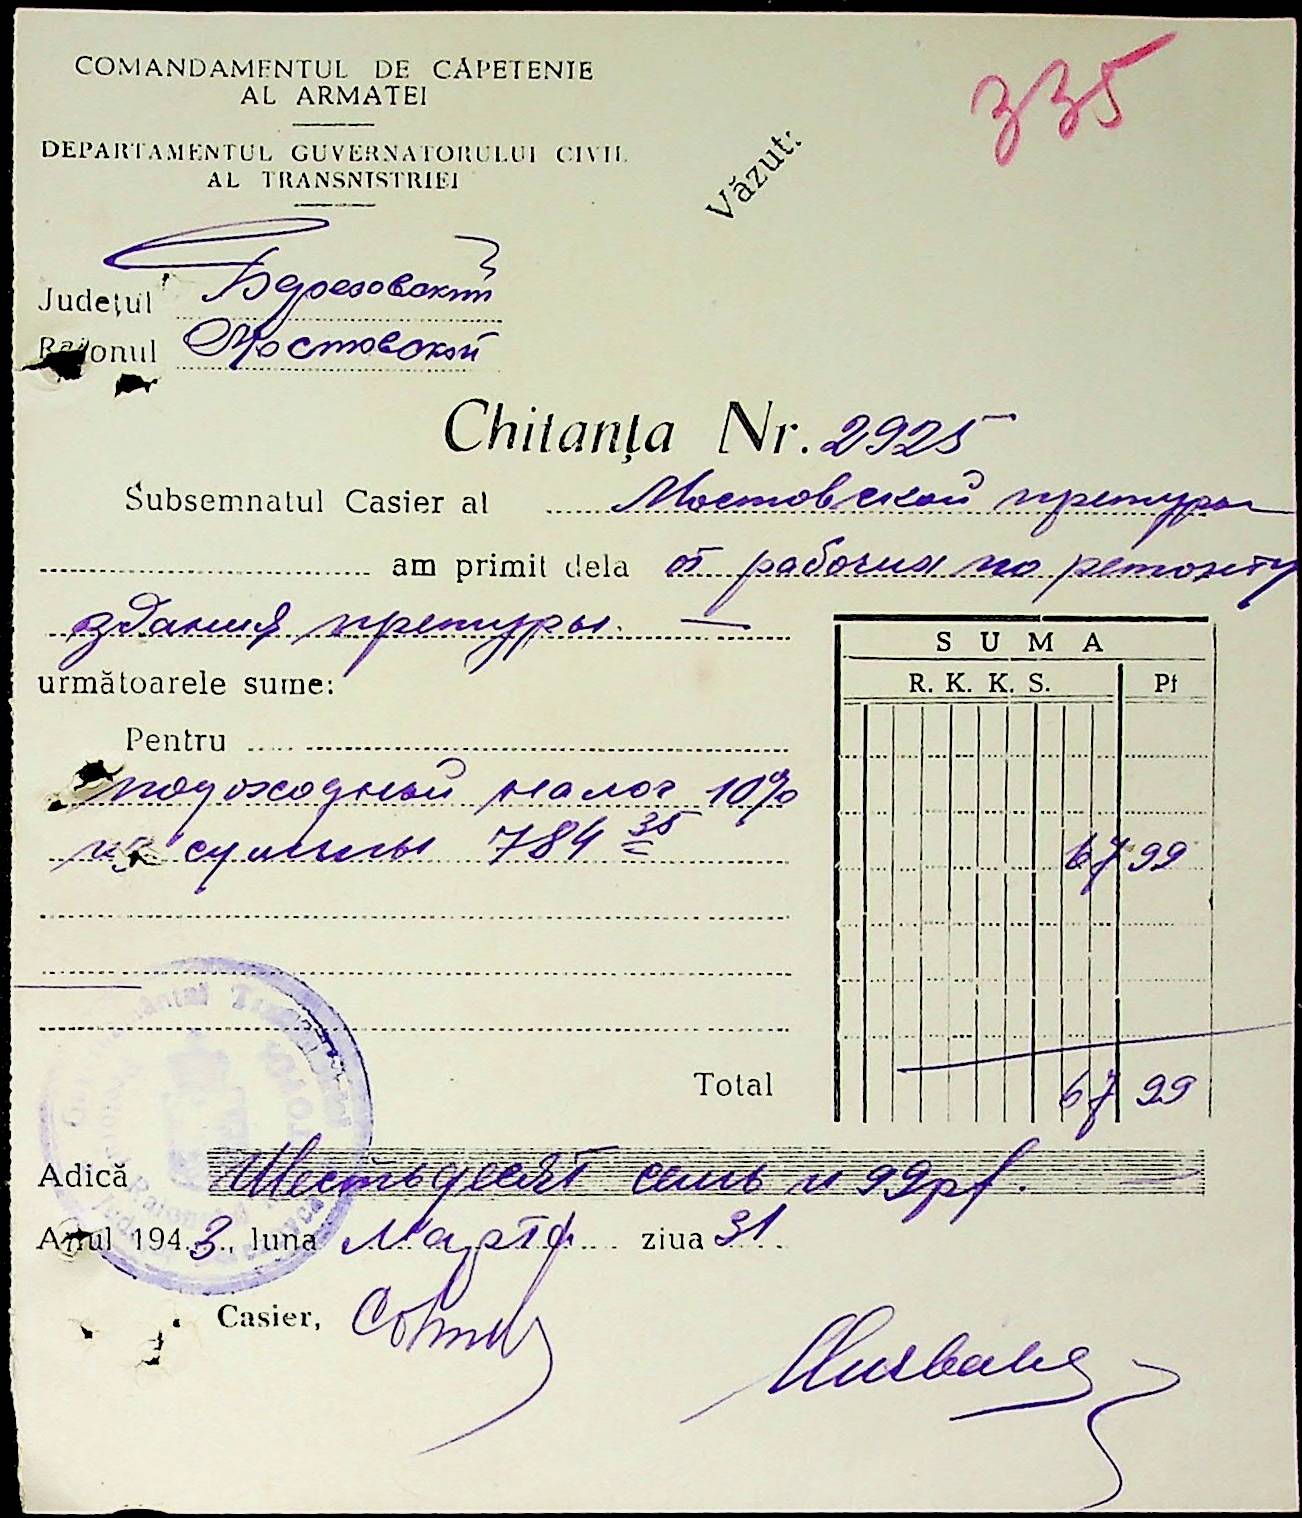 COMANDAMENTUL DE CĂPETENIE
AL ARMATEI
DEPARTAMENTUL GUVERNATORULUI CIVIL
AL TRANSNISTRIEI
335
Văzut:
Județul Березовский
Raionul Мостовской
Chitanța Nr. 2925
Subsemnatul Casier al Мостовской претуры
am primit dela от рабочих по ремонту
здания претуры. —
următoarele sume:
SUMA
R. K. K. S. Pf
Pentru
подоходный налог 10%
из суммы 784 35
67 99
Total 67 99
Adică Шестьдесят семь и 99 pf.
Anul 1943, luna Марта ziua 31
Casier,